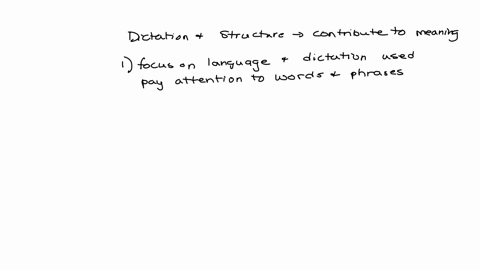 Dictation & Structure → contribute to meaning
1) focus on language & dictation used
pay attention to words & phrases